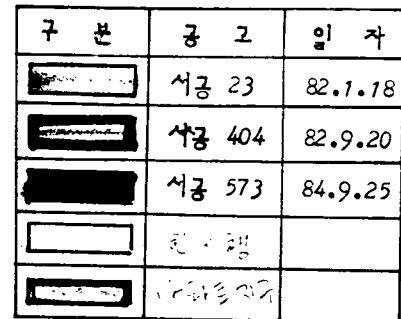 구 분 공 고 일 자
서공 23 82.1.18
서공 404 82.9.20
서공 573 84.9.25